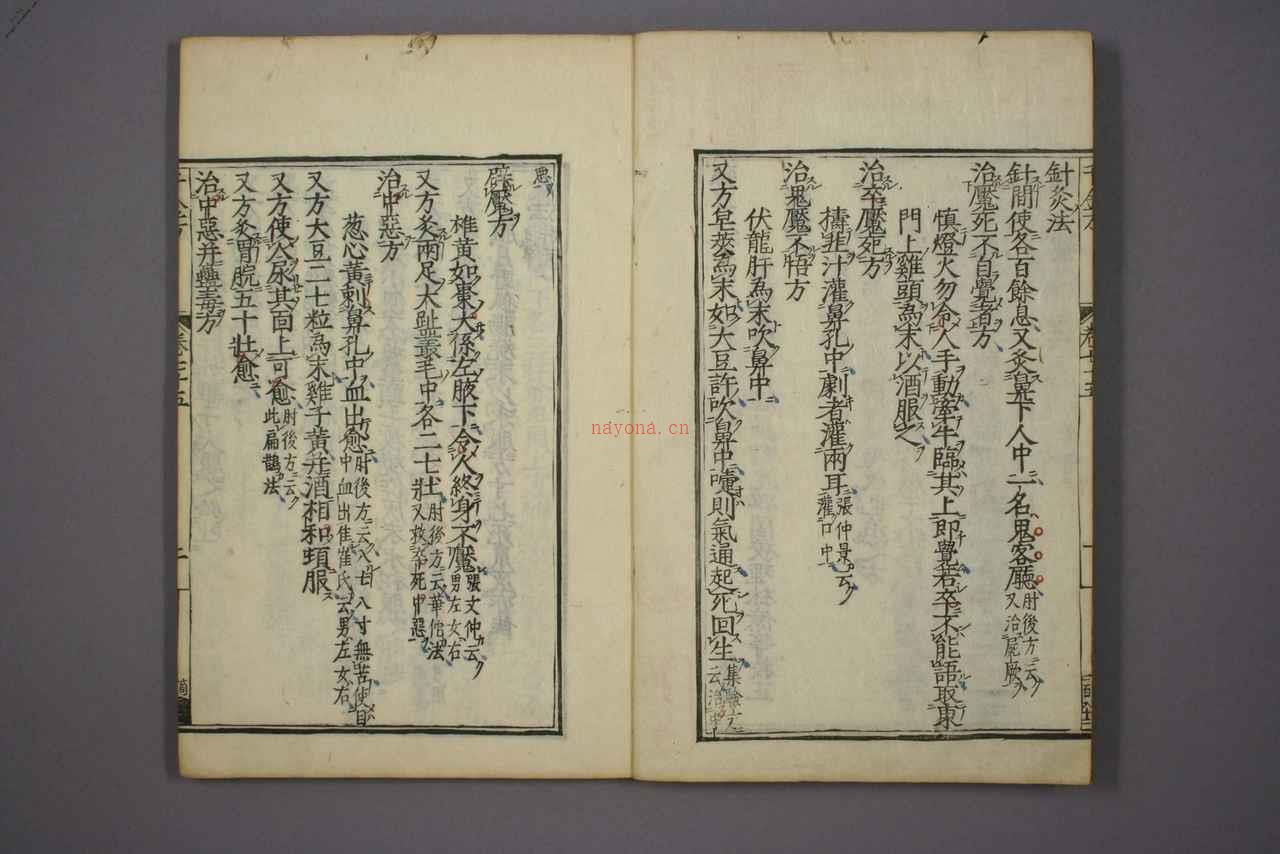 針灸法
針間使各百餘息又灸鼻下人中一名鬼客廳肘後方云又治尸厥
治魘死不自覺者方
慎燈火勿令人手動牽牛臨其上即覺若卒不能語取東
門上雞頭為末以酒服之
治卒魘死方
擣韭汁灌鼻孔中劇者灌兩耳張仲景云灌口中
治鬼魘不悟方
伏龍肝為末吹鼻中
又方皂莢為末如大豆許吹鼻中嚏則氣通起死回生集驗方云治中
惡
辟魘方
雄黃如棗大係左腋下令人終身不魘張文仲云男左女右
又方灸兩足大趾叢毛中各二七壯肘後方云華佗法又救卒死中惡
治中惡方
葱心黃刺鼻孔中血出愈肘後方云入七八寸無苦使目中血出佳崔氏云男左女右
又方大豆二七粒為末雞子黃并酒相和頓服
又方使人尿其面上可愈肘後方云此扁鵲法
又方灸胃脘五十壯愈
治中惡并蠱毒方
卷二十五
nayona.cn